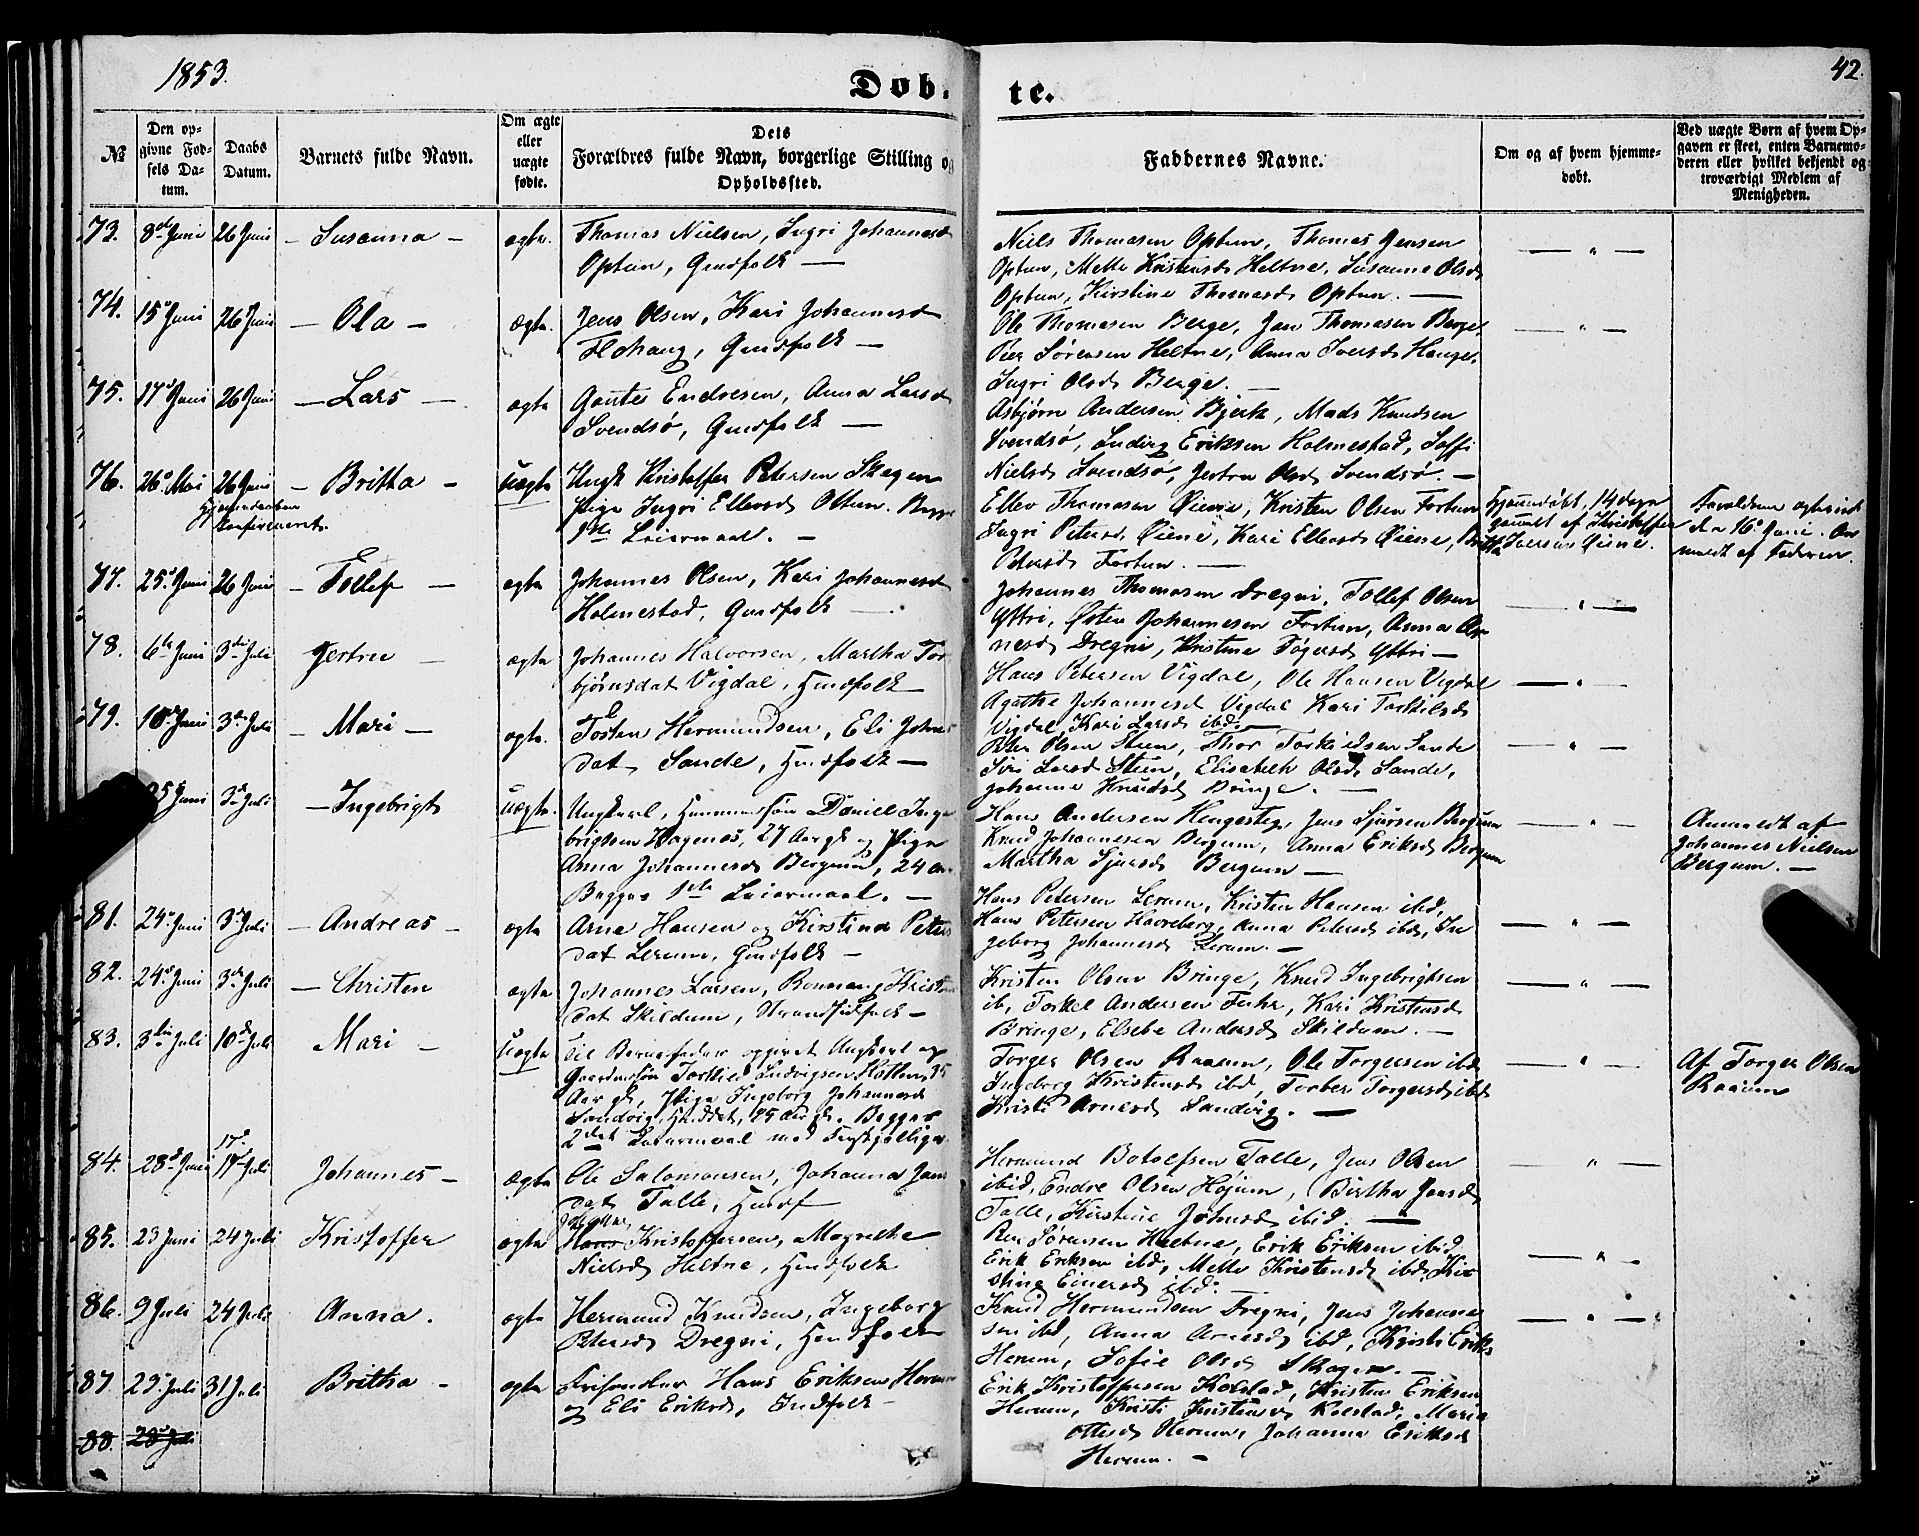 1853.
Døb- te.
42.
№
Den opgivne Fødsels Datum.
Daabs Datum.
Barnets fulde Navn.
Om ægte eller uægte fødte.
Dets Forældres fulde Navn, borgerlige Stilling og Opholdssted.
Faddernes Navne.
Om og af hvem hjemmedøbt.
Ved uægte Børn af hvem Opgaven er skeet, enten Barnemoderen eller hvilket bekjendt og troværdigt Medlem af Menigheden.
73. 8de Juni 26 Juni – Susanna – ægte. Thomas Nielsen, Ingri Johannesd
Optun, Gmdfolk —
Niels Thomasen Optun, Thomas Jensen
Optun, Mette Kristensd Heltne, Susanne Olsd
Optun, Kirstine Thomasd Optun. —
74. 15d Juni 26 Juni – Ola – ægte. Jens Olsen, Kari Johannesd
Flohaug, Gmdfolk —
Ole Thomasen Berge, Jan Thomasen Berge,
Peer Sørensen Heltne, Anna Iversd Hauge,
Ingri Olsd Berge. —
75. 17d Juni 26 Juni – Lars – ægte Gaute Endresen, Anna Larsd
Svendsø, Gmdfolk —
Asbjørn Andersen Bjørk, Mads Knudsen
Svendsø, Ludvig Eriksen Holmestad, Soffi
Nielsd Svendsø, Jertru Olsd Svendsø. —
76. 26d Mai 26 Juni – Britha – uægte Ungk Kristoffer Petersen Skagen
Pige Ingri Ellevsd Ottum. Begge
1ste Leiermaal. –
Hjemmedaaben
konfirmeret.
Ellev Thomasen Øiene, Kristen Olsen Fortun
Ingri Petersd Øiene, Kari Ellevsd Øiene, Britha
Petersd Fortun. —
Hjemmedøbt, 14 dage
gammelt af Kristoffer
Iversen Øiene.
Forældrene ægteviet
den 16d Juni. An
meldt af Faderen.
77. 25d Juni 26 Juni – Tollef – ægte Johannes Olsen, Kari Johannesd
Holmestad, Gmdfolk —
Johannes Thomasen Dregni, Tollef Olsen
Yttri, Østen Johannesen Fortun, Anna Ar
nesd Dregni, Kristine Tøgersd Yttri —
78. 6te Juni 3die Juli Jertru – ægte Johannes Halvorsen, Martha Tor
bjørnsdat Vigdal, Hmdfolk —
Hans Petersen Vigdal, Ole Hansen Vigdal
Agathe Johannesd Vigdal Kari Torkilsd
Vigdal, Kari Larsd ibd. —
79. 10d Juni 3die Juli – Mari – ægte. Tosten Hermundsen, Eli Johns
dat Sande, Hmdfolk —
Peter Olsen Steen, Thor Torkildsen Sande
Siri Larsd Steen, Elisabeth Olsd Sande,
Johanne Knudsd Bringe. —
25 Juni 3d Juli – Ingebrigt uægte. Ungkarl, Huusmandssøn Daniel Inge
brigtsen Hagenes, 27 Aar gl og Pige
Anna Johannesd Bergum, 24 Aar
Begges 1ste Leiermaal. —
Hans Andersen Hengesteg, Jens Sjursen Bergum
Knud Johannesen Bergum, Anna Eriksd Bergum
Martha Sjursd Bergum —
Anmeldt af
Johannes Nielsen
Bergum. —
81. 24d Juni 3d Juli – Andreas – ægte Arne Hansen og Kirstine Peters
dat Lerum, Gmdfolk —
Hans Petersen Lerum, Kristen Hansen ibd,
Hans Petersen Havreberg, Anna Petersd ibd, In
geborg Johannesd Lerum. —
82. 24d Juni 3die Juli – Christen ægte Johannes Larsen, Kristens
dat Skildum, Strandsidfolk —
Kristen Olsen Bringe, Knud Ingebrigtsen
ib, Torkel Andersen Fuhr, Kari Kristensd
Bringe, Elsebe Andersd Skildum. —
83. 3die Juli 10de Juli Mari – uægte Til Barnefader opgivet Ungkarl og
Gaardmandssøn Torkild Ludvigsen Kolten, 35
Aar gl, Pige Ingeborg Johannesd
Sandvig, 25 Aar gl. Begges
2det Leiermaal med Forskjellige.
Torger Olsen Raaum, Ole Torgersen ibd
Ingeborg Kristensd ibd, Torber Torgersd ibd
Kristi Arnesd Sandvig. —
Af Torger Olsen
Raaum
84. 28d Juni 17d Juli Johannes – ægte Ole Salomonsen, Johanna Jans
dat Talle, Hmdf
Hermund Botolfsen Talle, Jens Olsen
ibid, Endre Olsen Højum, Birtha Jansd
Talle, Kirstine Johnsd ibid. —
85. 23 Juni 24 Juli Kristoffer ægte Hans Kristoffersen, Magrethe
Nielsd Heltne, Hmdfolk
Peer Sørensen Heltne, Erik Eriksen ibid
Erik Eriksen ibd, Mette Kristensd ibd, Kir
stine Einersd ibd.
86. 9 Juli 24 Juli Anna. ægte Hermund Knudsen, Ingeborg
Petersd Dregni, Hmdfolk
Knud Hermundsen Dregni, Jens Johanne
sen ibd, Anna Arnesd ibd, Kristi Eriks
Herum, Sofie Olsd Skagen. —
87 23d Juli 31 Juli Britha – ægte Hans Eriksen Herum
og Eli Eriksd, Indfolk –
Erik Kristoffersen Kolstad, Kristen Eriksen
Herum, Kristi Kristensd Kolstad, Maria
Ottesd Herum, Johanna Eriksd
Herum. –
88. 28d Juli